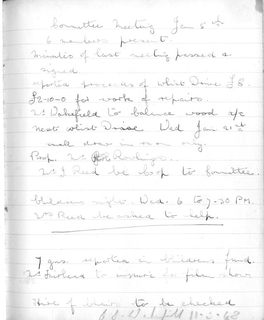 Committee Meeting Jan 5th
6 members present.
Minutes of last meeting passed &
signed
reported proceeds of whist Drive £8.
£2-10-0 for work of repairs.
Wakefield to balance wood a/c
next whist Drive Wed Jan 21st
Prop. Mrs Rawlings
Mrs J Reed be coop to Committee.
Childrens night. Wed. 6 to 7-30 PM.
Mrs Reed be asked to help.
7 gns reported in Childrens fund.
to enquire for film show
Hire of to be checked